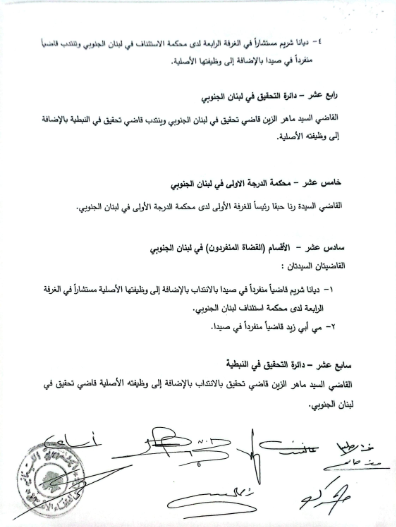 ٤- ديانا شريم مستشاراً في الغرفة الرابعة لدى محكمة الاستئناف في لبنان الجنوبي وتنتدب قاضياً
منفرداً في صيدا بالإضافة إلى وظيفتها الأصلية.
رابع عشر – دائرة التحقيق في لبنان الجنوبي
القاضي السيد ماهر الزين قاضي تحقيق في لبنان الجنوبي وينتدب قاضي تحقيق في النبطية بالإضافة
إلى وظيفته الأصلية.
خامس عشر – محكمة الدرجة الاولى في لبنان الجنوبي
القاضي السيدة رنا حبقا رئيساً للغرفة الأولى لدى محكمة الدرجة الأولى في لبنان الجنوبي.
سادس عشر – الأقسام (القضاة المنفردون) في لبنان الجنوبي
القاضيتان السيدتان :
١- ديانا شريم قاضياً منفرداً في صيدا بالانتداب بالإضافة إلى وظيفتها الأصلية مستشاراً في الغرفة
الرابعة لدى محكمة استئناف لبنان الجنوبي.
٢- مي أبي زيد قاضياً منفرداً في صيدا.
سابع عشر – دائرة التحقيق في النبطية
القاضي السيد ماهر الزين قاضي تحقيق بالانتداب بالإضافة إلى وظيفته الأصلية قاضي تحقيق في
لبنان الجنوبي.